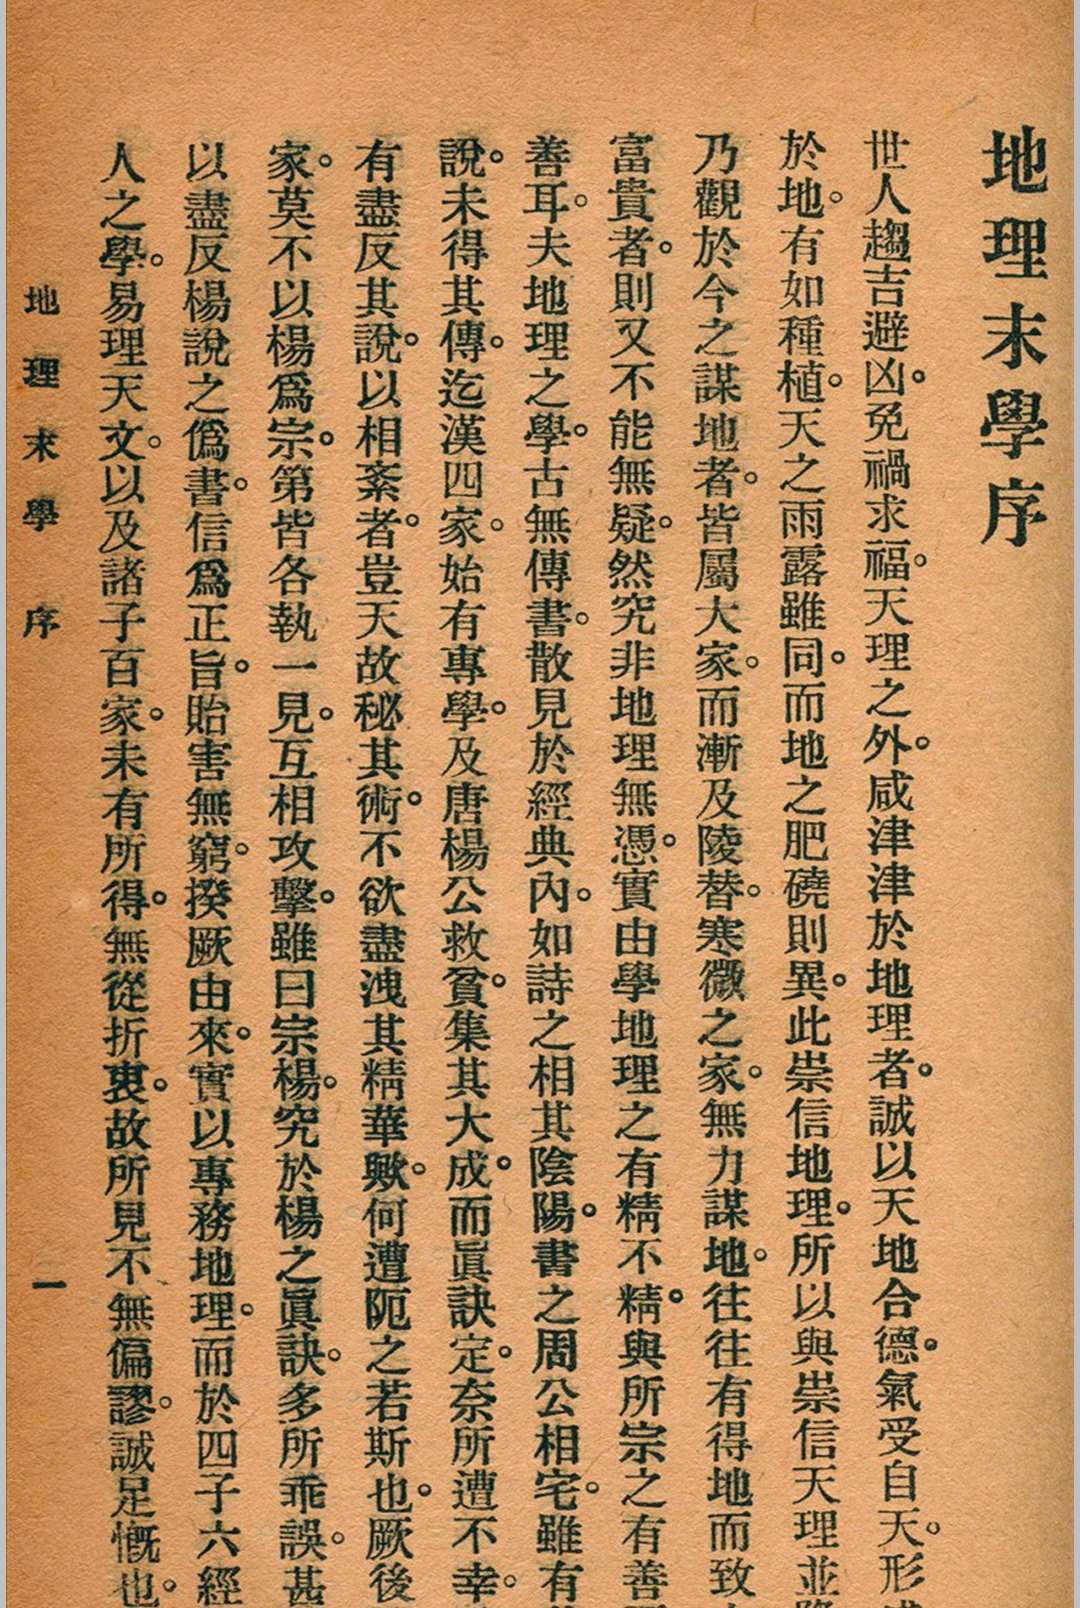 地理末學序
世人趨吉避凶。免禍求福。天理之外。咸津津於地理者。誠以天地合德。氣受自天。形
於地。有如種植。天之雨露雖同。而地之肥磽則異。此崇信地理。所以與崇信天理並
乃觀於今之謀地者。皆屬大家。而漸及陵替。寒微之家。無力謀地。往往有得地而致
富貴者。則又不能無疑。然究非地理無憑。實由學地理之有精不精。與所宗之有善
善耳。夫地理之學。古無傳書。散見於經典內。如詩之相其陰陽。書之周公相宅。雖有
說。未得其傳。迄漢四家。始有專學。及唐楊公救貧。集其大成。而眞訣定。奈所遭不幸。
有盡反其說。以相紊者。豈天故秘其術。不欲盡洩其精華歟。何遭阨之若斯也。厥後
家。莫不以楊爲宗。第皆各執一見。互相攻擊。雖曰宗楊。究於楊之眞訣。多所乖誤。甚
以盡反楊說之僞書。信爲正旨。貽害無窮。揆厥由來。實以專務地理。而於四子六經
人之學。易理天文。以及諸子百家。未有所得。無從折衷。故所見不無偏謬。誠足慨也。
地理末學 序
一